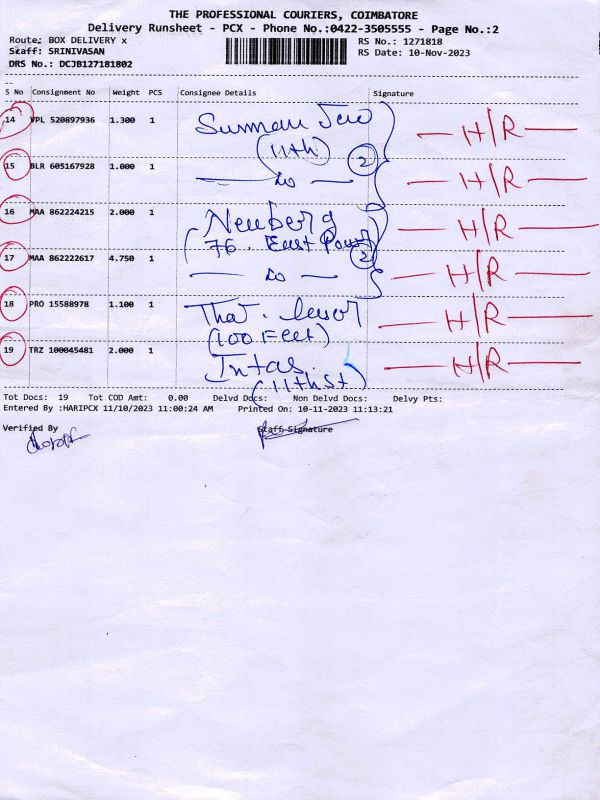 THE PROFESSIONAL COURIERS, COIMBATORE
Delivery Runsheet - PCX - Phone No.:0422-3505555 - Page No.:2
Route: BOX DELIVERY x RS No.: 1271818
Staff: SRINIVASAN RS Date: 10-Nov-2023
DRS No.: DCJB127181802
S No Consignment No Weight PCS Consignee Details Signature
14 VPL 520897936 1.300 1 H/R
(11th) 2
15 BLR 605167928 1.000 1 H/R
16 MAA 862224215 2.000 1 Neuberg H/R
76. East 2
17 MAA 862222617 4.750 1 H/R
18 PRO 15588978 1.100 1 H/R
(100 Feet)
19 TRZ 100045481 2.000 1 Intas. H/R
(11th st)
Tot Docs: 19 Tot COD Amt: 0.00 Delvd Docs: Non Delvd Docs: Delvy Pts:
Entered By :HARIPCX 11/10/2023 11:00:24 AM Printed On: 10-11-2023 11:13:21
Verified By Staff Signature